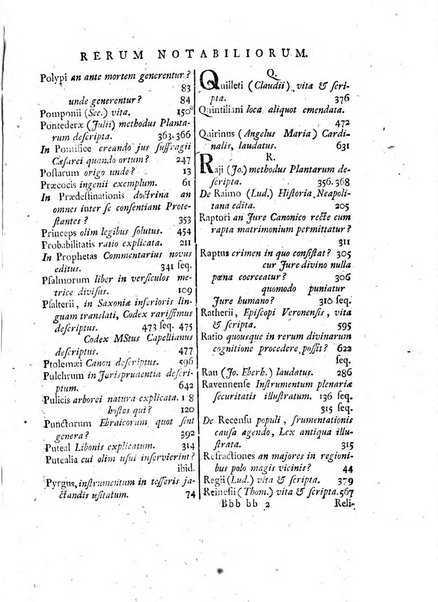 RERUM NOTABILIORUM.
Polypi an ante mortem generentur?
83
unde generentur? 84
Pomponii (Sec.) vita. 150
Pontederæ (Julii) methodus Planta-
rum descripta. 363-366
In Pontifice creando jus suffragii
Cæsarei quando ortum? 247
Postarum origo unde? 13
Præcocis ingenii exemplum. 61
In Prædestinationis doctrina an
omnes inter se consentiant Prote-
stantes? 353
Princeps olim legibus solutus. 454
Probabilitatis ratio explicata. 211
In Prophetas Commentarius novus
editus. 341 seq.
Psalmorum liber in versiculos me-
trice divisus. 109
Psalterii, in Saxoniæ inferioris lin-
guam translati, Codex rarissimus
descriptus. 473 seq. 475
Codex MStus Capellianus
descriptus. 477
Ptolemæi Canon descriptus. 596
Pulchrum in Jurisprudentia descri-
ptum. 642
Pulicis arborei natura explicata. 1 8
hostes qui? 120
Punctorum Ebraicorum quot sint
genera? 392
Puteal Libonis explicatum. 314
Putealia cui olim usui inservierint?
ibid.
Pyrgus, instrumentum in tesseris ja-
ctandis usitatum. 74
Q.
Quilleti (Claudii) vita & scri-
pta. 376
Quintiliani loca aliquot emendata.
472
Quirinus (Angelus Maria) Cardi-
nalis, laudatus. 631
R.
Raji (Jo.) methodus Plantarum de-
scripta. 356. 368
De Raimo (Lud.) Historia Neapoli-
tana edita. 205
Raptori an Jure Canonico recte cum
rapta matrimonium permittatur?
311
Raptus crimen in quo consistat? 303
cur Jure divino nulla
pœna coerceatur? 306
quomodo puniatur
Jure humano? 310 seq.
Ratherii, Episcopi Veronensis, vita
& scripta. 595
Ratio quousque in rerum divinarum
cognitione procedere possit? 622
seq.
Rau (Jo. Eberh.) laudatus. 286
Ravennense Instrumentum plenariæ
securitatis illustratum. 136 seq.
315 seq.
De Recensu populi, frumentationis
causa agendo, Lex antiqua illu-
strata. 383
Refractiones an majores in regioni-
bus polo magis vicinis? 44
Regii (Lud.) vita & scripta. 379
Reinesii (Thom.) vita & scripta. 567
Bbb bb 2 Reli-